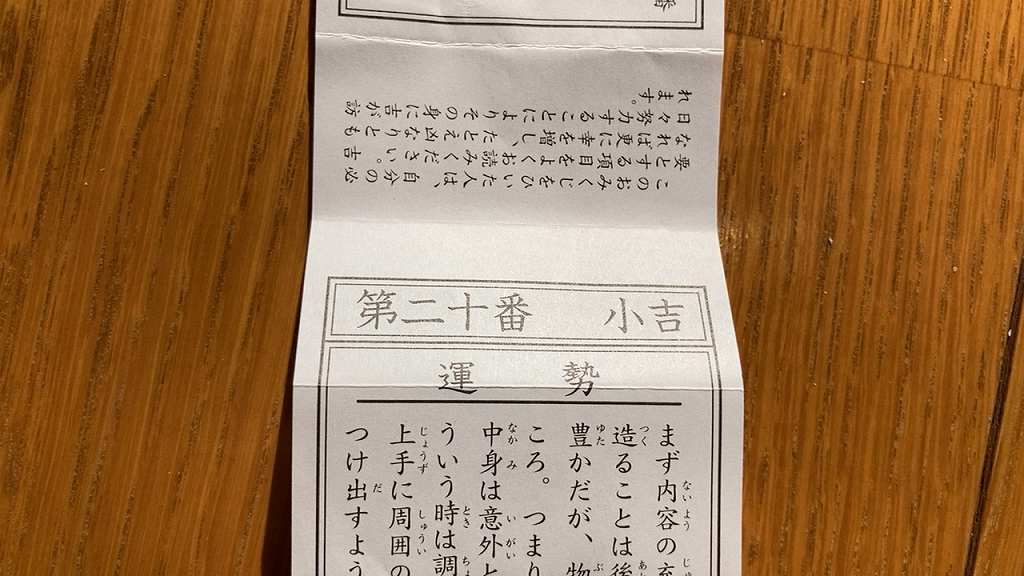 番
このおみくじをひいた人は、自分の必
要とする項目をよくお読みください。吉
なれば更に幸を増し、たとえ凶なりとも
日々努力することによりその身に吉が訪
れます。
第二十番 小吉
運勢
まず内容の充
造ることは後
豊かだが、物
ころ。つまり
中身は意外と
ういう時は調
上手に周囲の
つけ出すよう